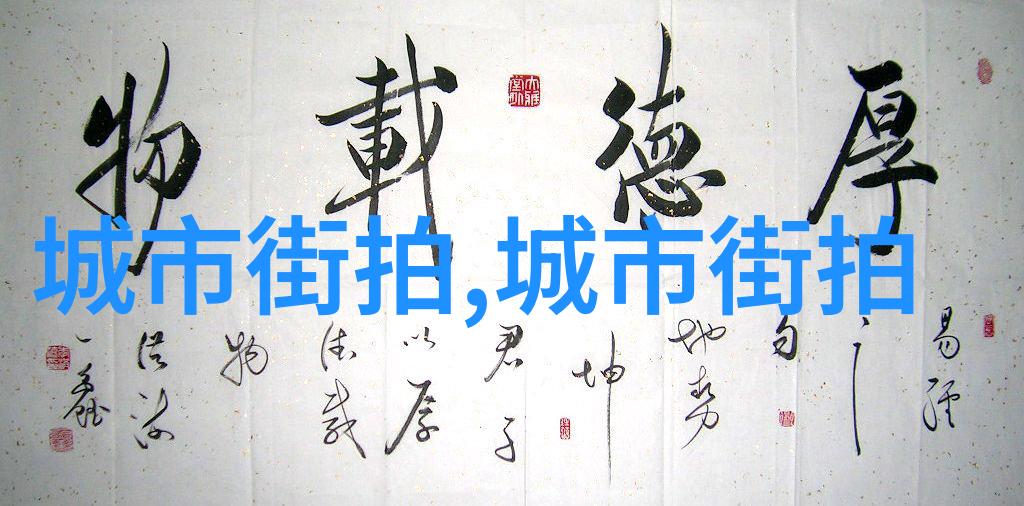 厚德載物
城市街拍,城市街拍
易經
之
句
地勢
坤
君子
以厚
德載
物